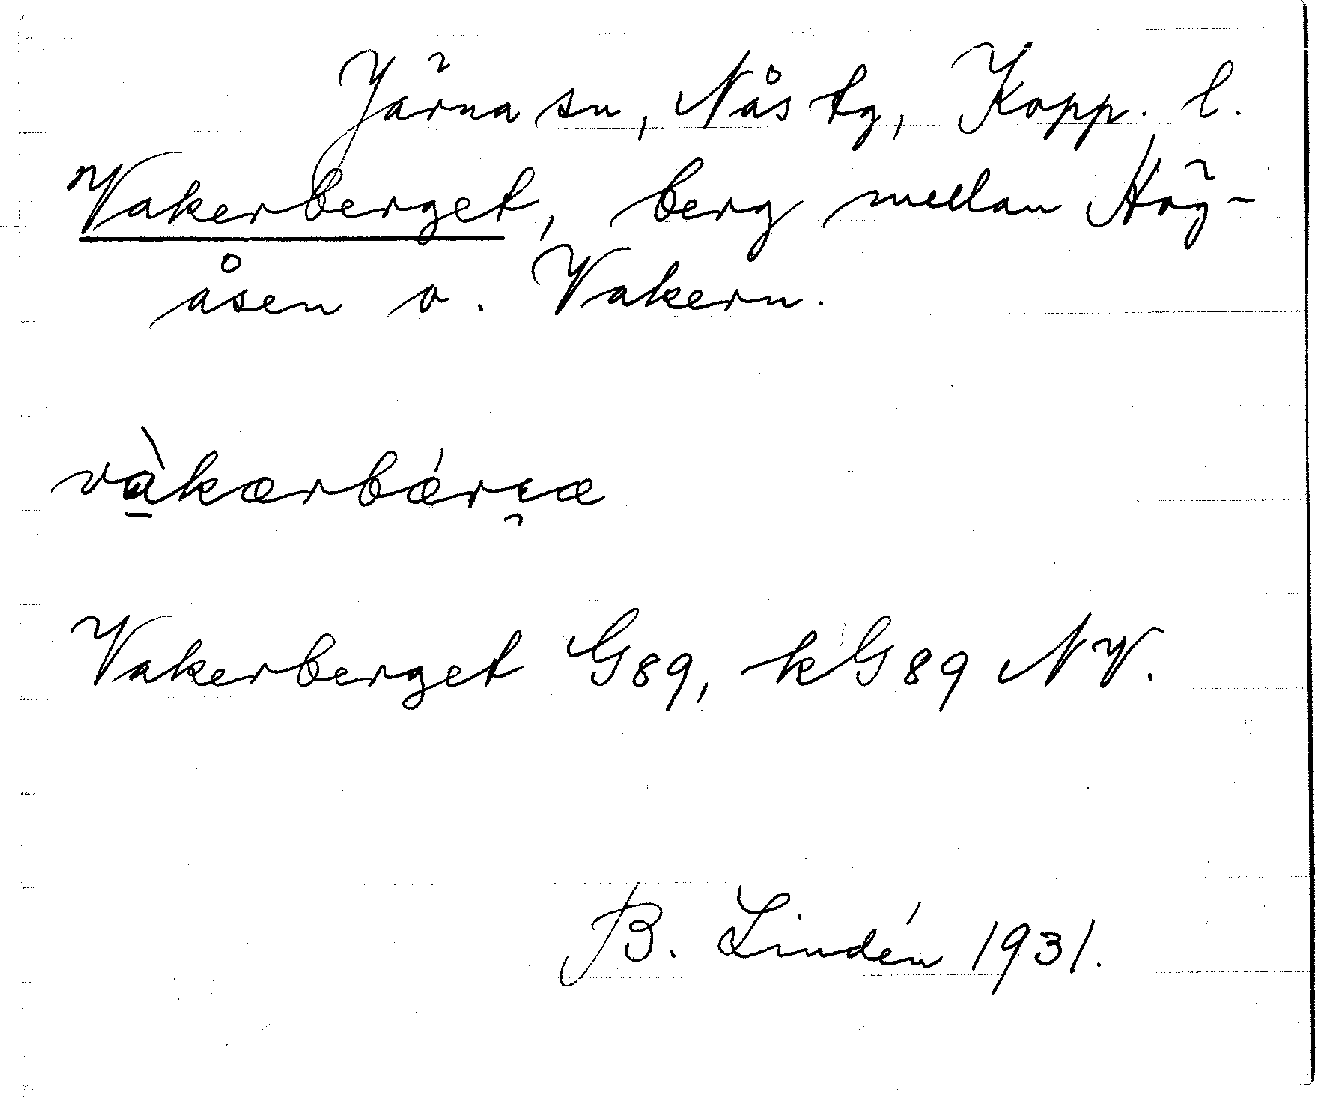 Järna sn, Nås tg, Kopp. l.
Vakerberget, berg mellan Hög-
åsen o. Vakern.
Vakerberget G89, kG89 NV.
B. Lindén 1931.